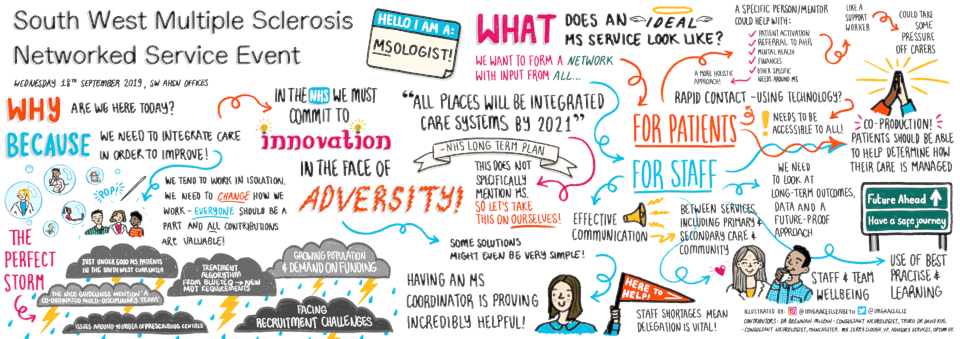 South West Multiple Sclerosis
Networked Service Event
WEDNESDAY 18TH SEPTEMBER 2019, SW AHSN OFFICES
HELLO I AM A:
MSOLOGIST!
WHY ARE WE HERE TODAY?
BECAUSE WE NEED TO INTEGRATE CARE
IN ORDER TO IMPROVE!
POP!
WE TEND TO WORK IN ISOLATION.
WE NEED TO CHANGE HOW WE
WORK - EVERYONE SHOULD BE A
PART AND ALL CONTRIBUTIONS
ARE VALUABLE!
THE
PERFECT
STORM
JUST UNDER 6000 MS PATIENTS
IN THE SOUTH WEST CURRENTLY
THE NICE GUIDELINES MENTION 'A
CO-ORDINATED MULTI-DISCIPLINARY TEAM'
ISSUES AROUND NUMBER OF PRESCRIBING CENTRES
TREATMENT
ALGORITHM
FROM BLUETEQ → NEW
MDT REQUIREMENTS
GROWING POPULATION
& DEMAND ON FUNDING
FACING
RECRUITMENT CHALLENGES
IN THE NHS WE MUST
COMMIT TO
innovation
IN THE FACE OF
ADVERSITY!
"ALL PLACES WILL BE INTEGRATED
CARE SYSTEMS BY 2021"
-NHS LONG TERM PLAN
THIS DOES NOT
SPECIFICALLY
MENTION MS.
SO LET'S TAKE
THIS ON OURSELVES!
SOME SOLUTIONS
MIGHT EVEN BE VERY SIMPLE!
HAVING AN MS
COORDINATOR IS PROVING
INCREDIBLY HELPFUL!
WHAT DOES AN IDEAL
MS SERVICE LOOK LIKE?
WE WANT TO FORM A NETWORK
WITH INPUT FROM ALL...
FOR PATIENTS
FOR STAFF
EFFECTIVE
COMMUNICATION
BETWEEN SERVICES,
INCLUDING PRIMARY &
SECONDARY CARE &
COMMUNITY
HERE TO
HELP!
STAFF SHORTAGES MEAN
DELEGATION IS VITAL!
A SPECIFIC PERSON/MENTOR
COULD HELP WITH:
PATIENT ACTIVATION
REFERRAL TO AHPS
MENTAL HEALTH
FINANCES
OTHER SPECIFIC
NEEDS AROUND MS
A MORE HOLISTIC
APPROACH!
LIKE A
SUPPORT
WORKER
COULD TAKE
SOME
PRESSURE
OFF CARERS
RAPID CONTACT - USING TECHNOLOGY?
! NEEDS TO BE
ACCESSIBLE TO ALL!
CO-PRODUCTION!
PATIENTS SHOULD BE ABLE
TO HELP DETERMINE HOW
THEIR CARE IS MANAGED
WE NEED
TO LOOK AT
LONG-TERM OUTCOMES,
DATA AND A
FUTURE-PROOF
APPROACH
Future Ahead
Have a safe journey
STAFF & TEAM
WELLBEING
USE OF BEST
PRACTISE &
LEARNING
ILLUSTRATED BY: @IMGRACELIZABETH @IMGRACELIZ
CONTRIBUTORS: DR BRENDAN MCLEAN - CONSULTANT NEUROLOGIST, TRURO. DR DAVID ROG,
- CONSULTANT NEUROLOGIST, MANCHESTER. MR JERRY CLOUGH, VP, ADVISORY SERVICES, OPTUM UK.